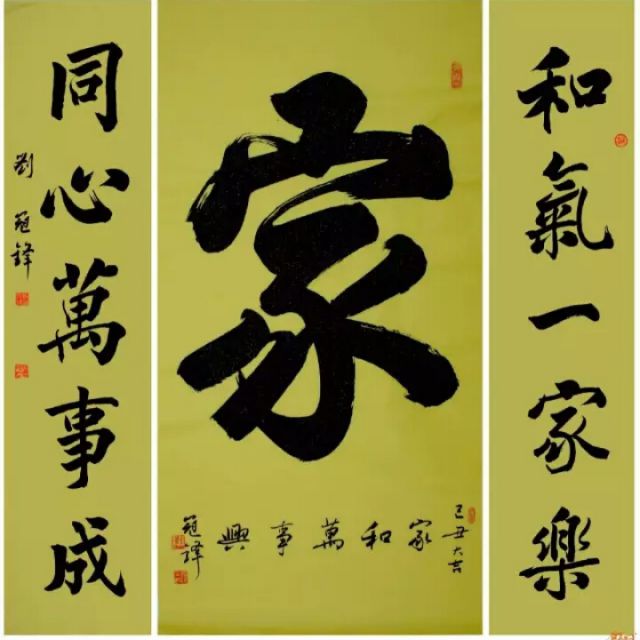 和氣一家樂
家
己丑大吉
家和萬事興
同心萬事成
劉冠